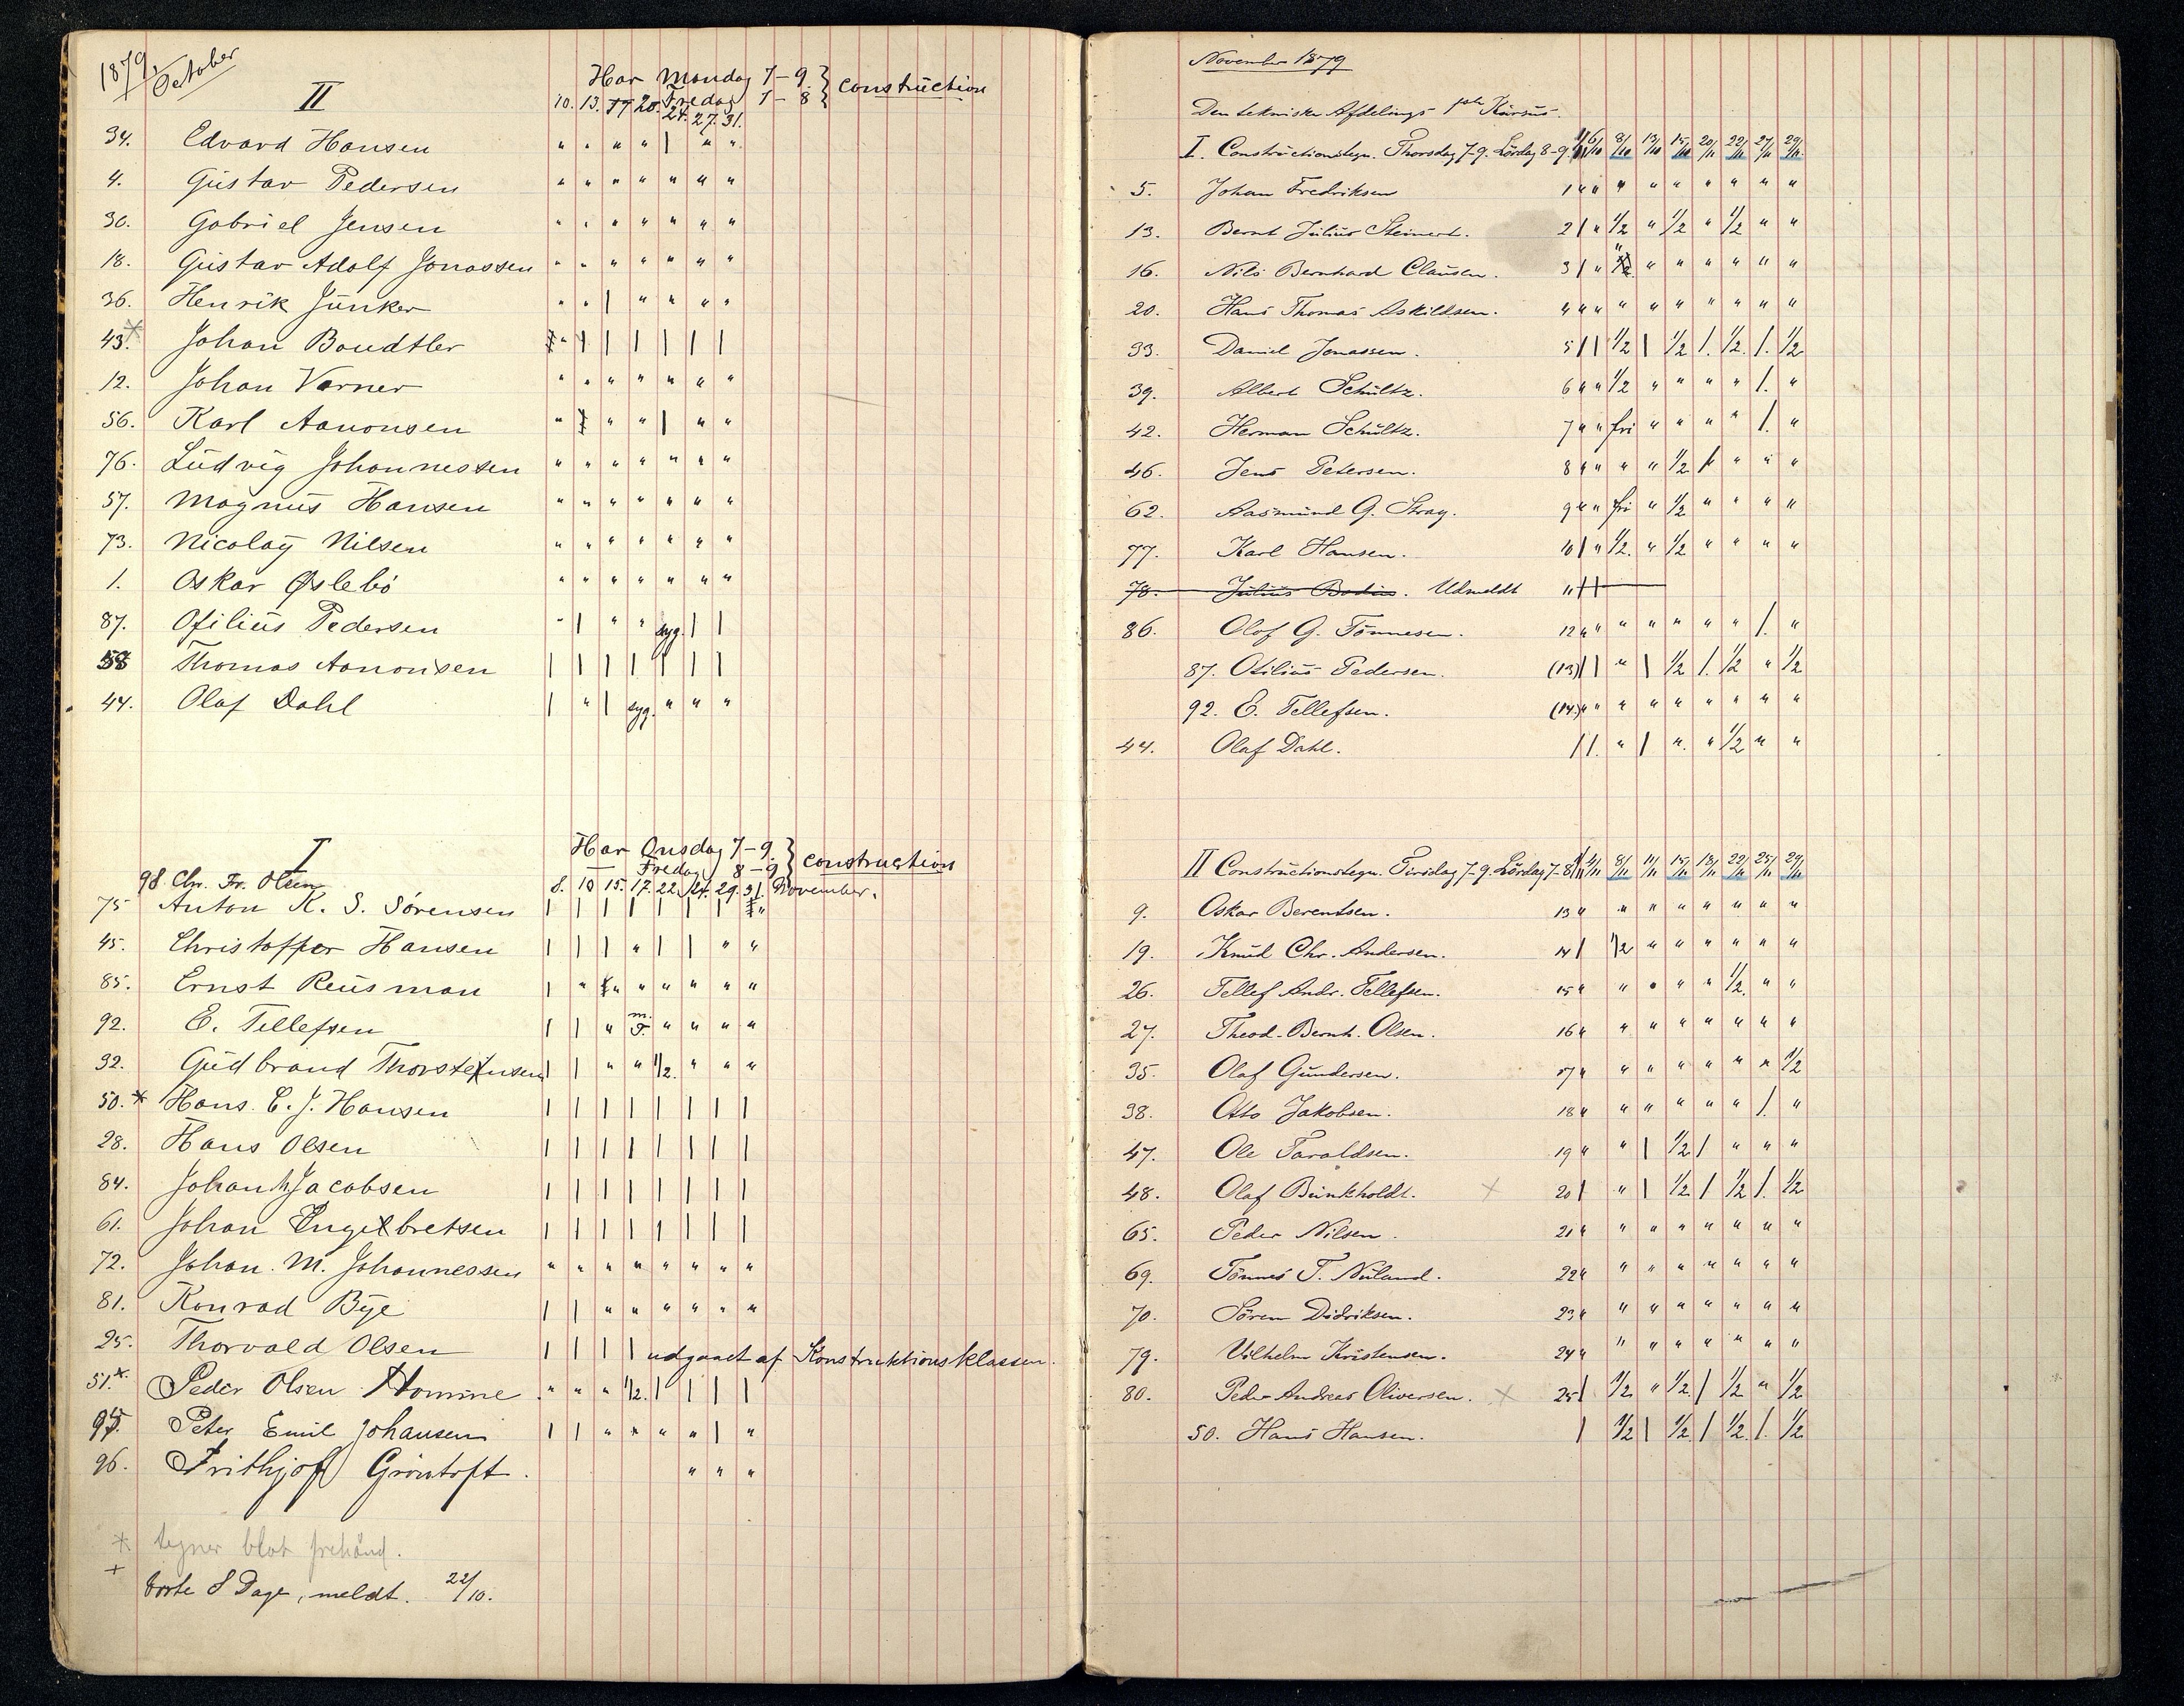 1879, October
II
Har Mandag 7-9 } Construction
Fredag 7-8
10. 13. 17. 20. 24. 27. 31.
34. Edvard Hansen " " " " | " "
4. Gustav Pedersen " " " " " " "
30. Gabriel Jensen " " " " " " "
18. Gustav Adolf Jonassen " " " " " " "
36. Henrik Junker " " | " " " "
43.* Johan Boudtler " | | | | | |
12. Johan Verner " " " " " " "
56. Karl Aanonsen " " " | " "
76. Ludvig Johannessen " " " " " " "
57. Magnus Hansen " " " " " " "
73. Nicolay Nilsen " " " " " " "
1. Oskar Øslebö " " " " " " "
87. Otilius Pedersen " | " " syg. | |
58 Thomas Aanonsen | | | | | | |
44. Olaf Dahl | " | syg. " " "
I
Har Onsdag 7-9 } Construction
— Fredag 8-9
98 Chr. Fr. Olsen
8. 10 15. 17. 22. 24. 29. 31. November.
75 Anton K. S. Sørensen | | | | | | | "
45. Christoffer Hansen | | | " | | " "
85. Ernst Reusman | " " " " " " "
92. E. Tellefsen | | " m. F " " " "
32. Gudbrand Thorstensen | | " " 1/2. " " "
50.* Hans. E. J. Hansen | | | | | | | |
28. Hans Olsen | | | | | | | |
84. Johan Jacobsen | | | | | | | |
61. Johan Engebretsen | | | | | | | |
72. Johan. M. Johannessen " " " " " " " "
81. Konrad Bye | | " " " " " "
25. Thorvald Olsen | | | | udgaaet af Konstruktionsklassen.
51.* Peder Olsen Homme " " " 1/2. | | | |
Peter Emil Johansen | | " " " " | "
96. Frithjof Gröntoft. " " "
* tegner blot frehånd.
+ borte 8 Dage, meldt. 22/10.
November 1879
Den tekniske Afdelings 1ste Kursus.
I. Constructionstegn. Thorsdag 7-9. Lördag 8-9 8/11 13/11 15/11 20/11 22/11 27/11 29/11
5. Johan Fredriksen 1 " " " " " " " " "
13. Bernt Julius Steinert. 2 | " 1/2 " 1/2 " 1/2 " "
16. Nils Bernhard Clausen. 3 | " " " " " " " "
20. Hans Thomas Askildsen. 4 " " " " " " " " "
33. Daniel Jonassen. 5 | | 1/2 | 1/2 |. 1/2. |. 1/2
39. Albert Schultz. 6 " " 1/2 " " " " |. "
42. Herman Schultz. 7 " " fri " " " " |. "
46. Jens Petersen. 8 " " " " 1/2 | " " "
62. Aasmund G. Stray. 9 " " fri " 1/2 " " " "
77. Karl Hansen. 10 | " 1/2. " 1/2 " " " "
78. Julius Bodin. Udmeldt 11 | |
86. Olaf G. Tönnesen. 12 " " " " " " " |. "
87. Otilius Pedersen. (13) | | " | 1/2 |. 1/2 " 1/2
92. E. Tellefsen. (14) " " " " " " " " "
44. Olaf Dahl. | |. " | ". " 1/2 " "
II Constructionstegn. Tirsdag 7-9. Lördag 7-8 4/11 8/11 11/11 15/11 18/11 22/11 25/11 29/11
9. Oskar Berentsen. 13 " " " " " " " "
19. Knud Chr. Andersen. 14 | 1/2 " " " " " "
26. Tellef Andr. Tellefsen. 15 " " " " " 1/2. " "
27. Theod. Bernh. Olsen. 16 " " " " " " " "
35. Olaf Gundersen. 17 " " " " " " " 1/2
38. Otto Jakobsen. 18 " " " " " " |. "
47. Ole Taraldsen. 19 " " | 1/2 | " " "
48. Olaf Bunkholdt. × 20 | " | 1/2 | 1/2 |. 1/2
65. Peder Nilsen. 21 " " " " " " " "
69. Tönnes T. Nuland. 22 " " " " " " " "
70. Sören Didriksen. 23 " " " " " " " "
79. Vilhelm Kristensen. 24 " " " " " " " "
80. Peder Andreas Oliversen. × 25 | 1/2 " 1/2 | 1/2 " 1/2
50. Hans Hansen. | 1/2 | 1/2 | 1/2. |. 1/2